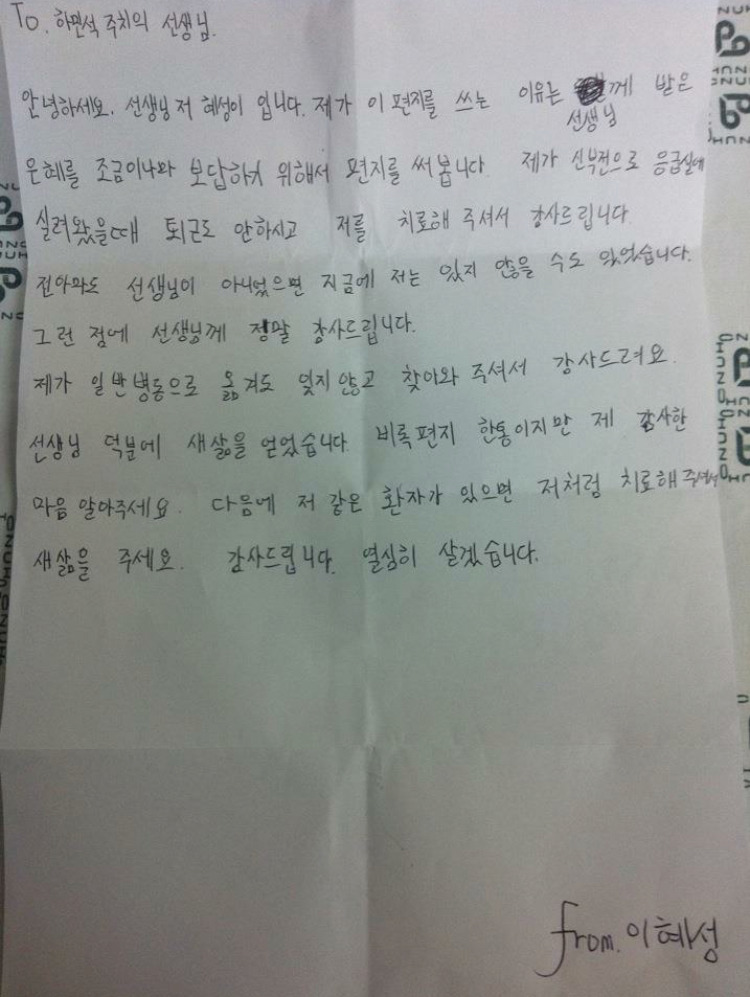 To. 하면석 주치의 선생님.
안녕하세요. 선생님 저 혜성이 입니다. 제가 이 편지를 쓰는 이유는 께 받은
선생님
은혜를 조금이나와 보답하기 위해서 편지를 써 봅니다. 제가 신부전으로 응급실에
실려왔을때 퇴근도 안하시고 저를 치료해 주셔서 감사드립니다.
전아와도 선생님이 아니었으면 지금에 저는 있지 않을 수도 있었습니다.
그런 점에 선생님께 정말 감사드립니다.
제가 일반병동으로 옮겨도 잊지않고 찾아와 주셔서 감사드려요.
선생님 덕분에 새삶을 얻었습니다. 비록편지 한통이지만 제 감사한
마음 알아주세요. 다음에 저 같은 환자가 있으면 저처럼 치료해주셔서
새삶을 주세요. 감사드립니다. 열심히 살겠습니다.
from. 이혜성